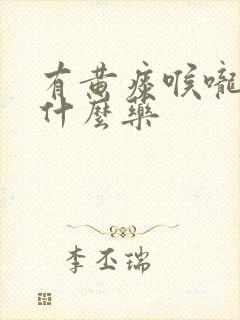 有黄痰喉嚨
什麼藥
李丕瑞